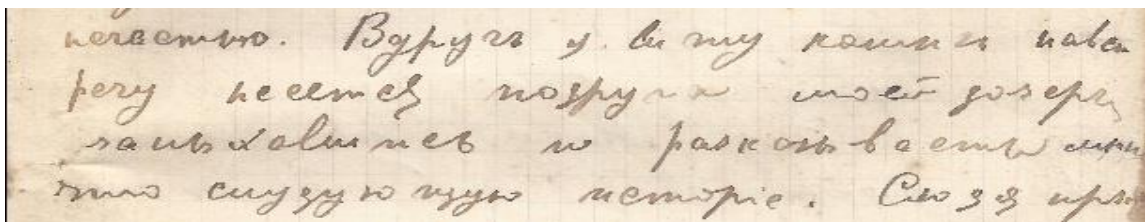 печестью. Вдругъ я вижу намъ навст
речу несется подруга моей дочери
запыхавшись и расказываетъ мне
что следующую исторiю. Сюда при